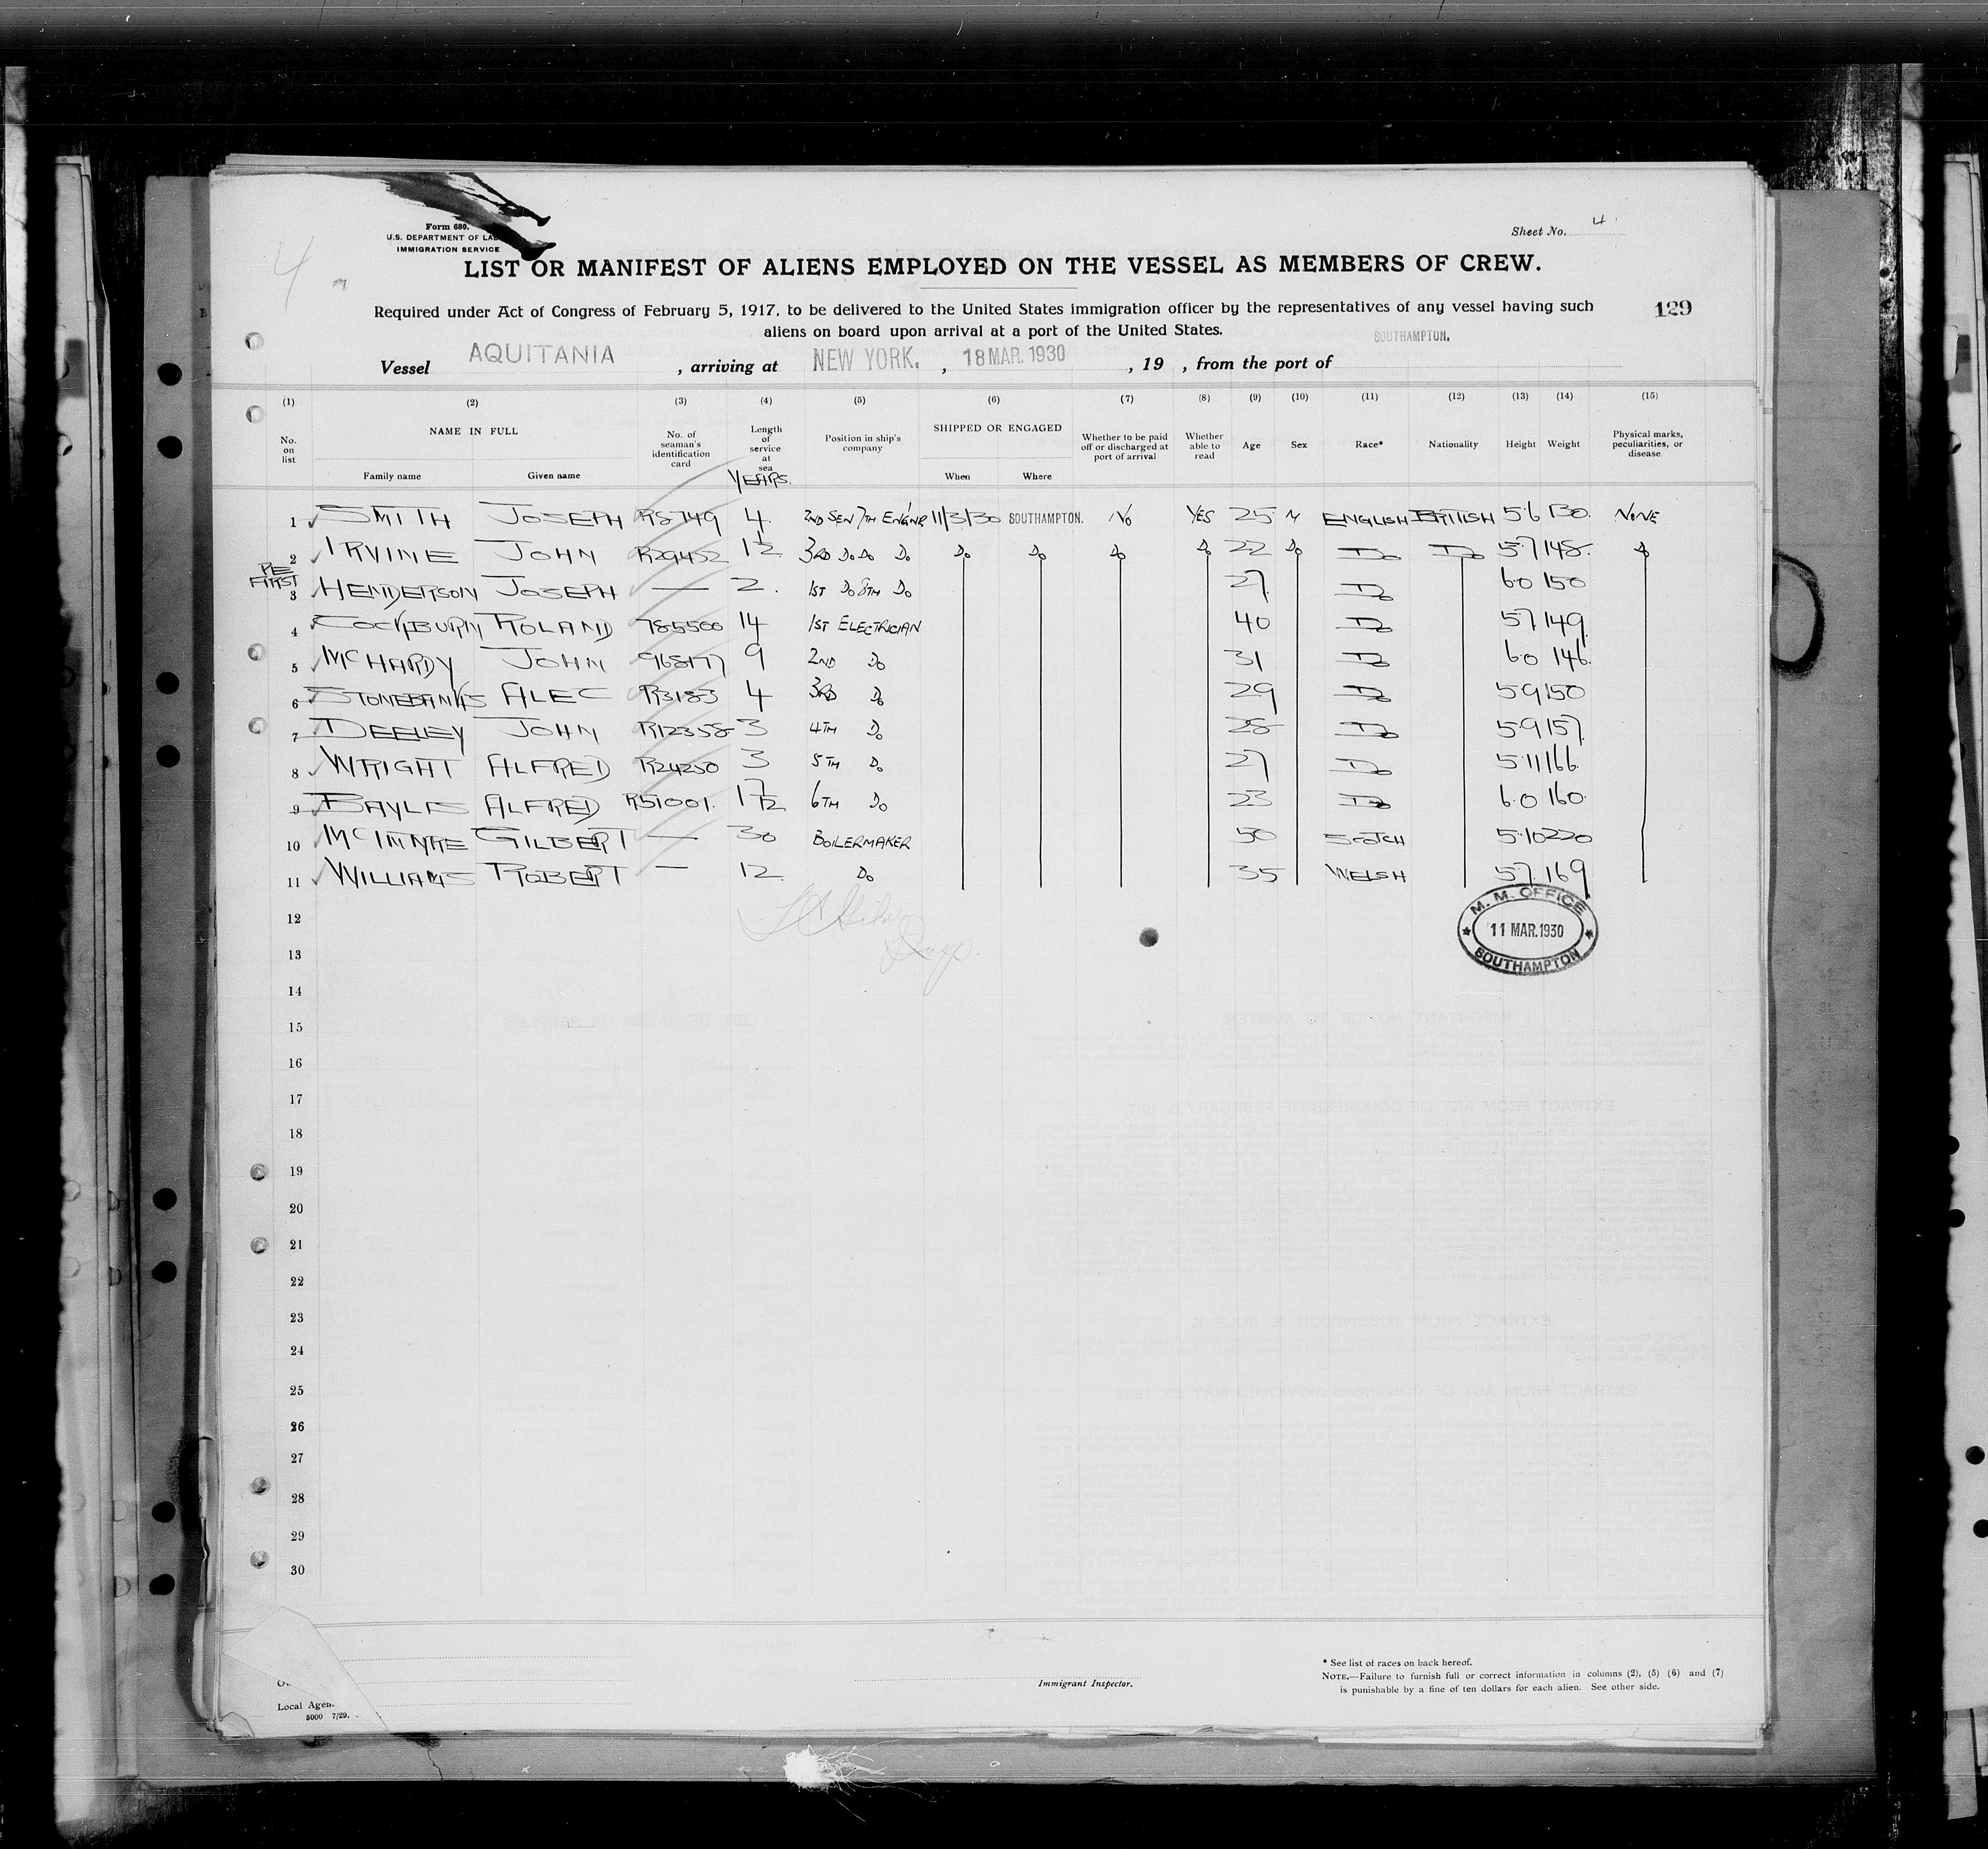 Sheet No. 4
Form 680.
U.S. DEPARTMENT OF LAB
IMMIGRATION SERVICE
4
LIST OR MANIFEST OF ALIENS EMPLOYED ON THE VESSEL AS MEMBERS OF CREW.
Required under Act of Congress of February 5, 1917, to be delivered to the United States immigration officer by the representatives of any vessel having such
129
aliens on board upon arrival at a port of the United States.
Vessel AQUITANIA , arriving at NEW YORK. , 18 MAR. 1930 , 19 , from the port of SOUTHAMPTON.
(1) (2) (3) (4) (5) (6) (7) (8) (9) (10) (11) (12) (13) (14) (15)
No. on list NAME IN FULL Family name Given name No. of seaman's identification card Length of service at sea YEARS. Position in ship's company SHIPPED OR ENGAGED When Where Whether to be paid off or discharged at port of arrival Whether able to read Age Sex Race* Nationality Height Weight Physical marks, peculiarities, or disease
1 SMITH JOSEPH R8749 4 2ND SEN 7TH ENGNR 11/3/30 SOUTHAMPTON. NO YES 25 M ENGLISH BRITISH 5.6 130 NONE
2 IRVINE JOHN R29452 1½ 3RD DO DO DO DO DO DO DO 22 DO DO DO 5.7 148 DO
RE FIRST
3 HENDERSON JOSEPH — 2 1ST DO 8TH DO 27 DO 6.0 150
4 COCKBURN ROLAND 785500 14 1ST ELECTRICIAN 40 DO 5.7 149
5 MCHARDY JOHN 968177 9 2ND DO 31 DO 6.0 146
6 STONEBANKS ALEC R3183 4 3RD DO 29 DO 5.9 150
7 DEELEY JOHN R12358 3 4TH DO 28 DO 5.9 157
8 WRIGHT ALFRED R24250 3 5TH DO 27 DO 5.11 166
9 BAYLIS ALFRED R51001 1½ 6TH DO 23 DO 6.0 160
10 MCINTYRE GILBERT — 30 BOILERMAKER 50 SCOTCH 5.10 220
11 WILLIAMS ROBERT — 12 DO 35 WELSH 5.7 169
M. M. OFFICE
11 MAR. 1930
SOUTHAMPTON
12
13
14
15
16
17
18
19
20
21
22
23
24
25
26
27
28
29
30
Local Agen
5000 7/29.
Immigrant Inspector.
* See list of races on back hereof.
NOTE.—Failure to furnish full or correct information in columns (2), (5) (6) and (7)
is punishable by a fine of ten dollars for each alien. See other side.